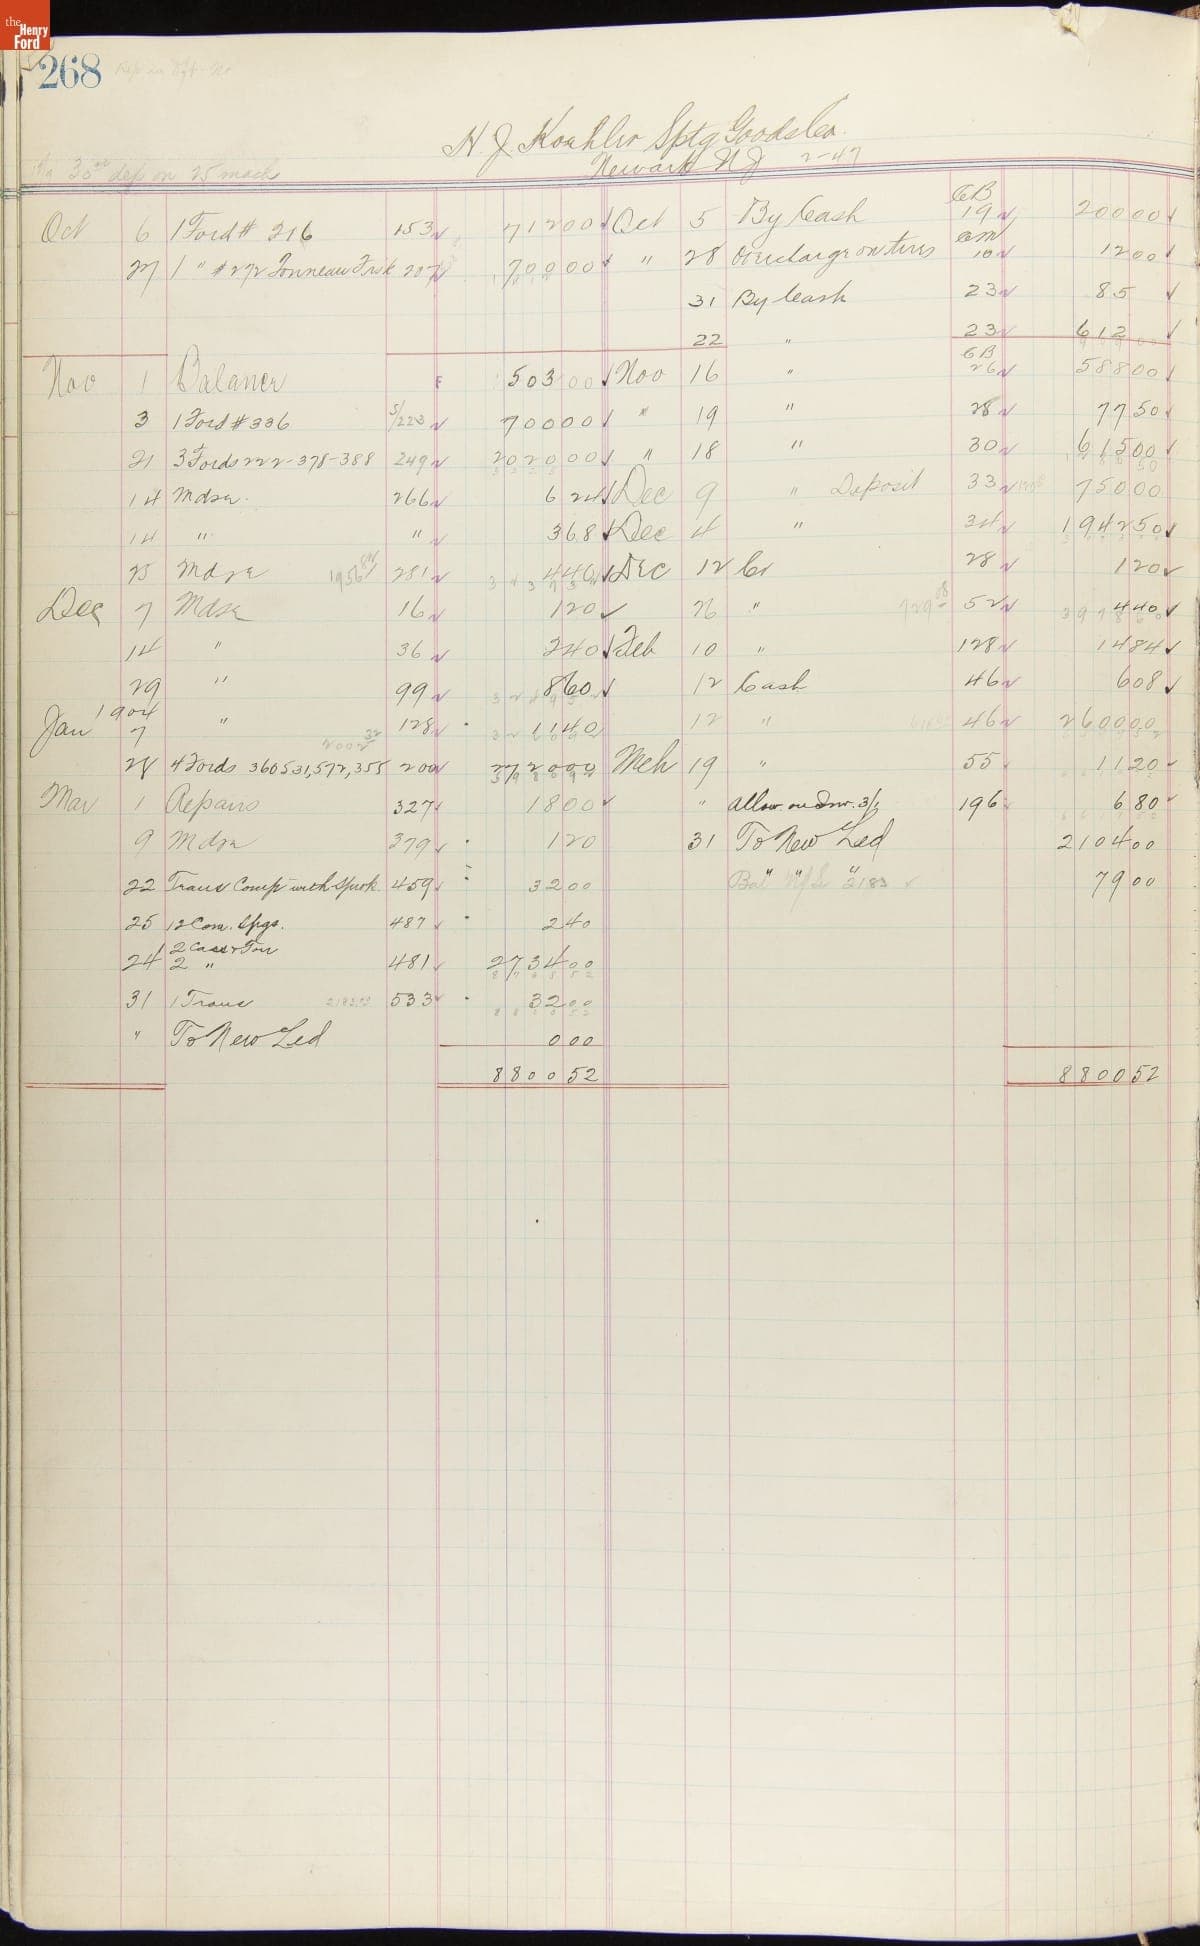 the
Henry
Ford
268
H. J. Koehler Sptg Goods Co.
Newark NJ 2-47
30 00 dep on 25 mach
Oct 6 1 Ford # 216 153 712 00 Oct 5 By Cash CB 19 200 00
27 1 " # 272 Tonneau Frt 207 700 00 " 28 Overcharge on tires CM 10 12 00
31 By Cash 23 85
22 " 23 612
Nov 1 Balance F 503 00 Nov 16 " CB 26 588 00
3 1 Ford # 336 5/223 700 00 " 19 " 28 77 50
21 3 Fords 222-378-388 249 2020 00 " 18 " 30 615 00
14 Mdse. 266 6 24 Dec 9 " Deposit 33 750 00
14 " " 3 68 Dec 4 " 34 1942 50
25 Mdse 1956 281 4 40 Dec 12 Cr 28 1 20
Dec 7 Mdse 16 1 20 26 " 729 08 52 4 40
14 " 36 2 40 Feb 10 " 128 14 84
29 " 99 8 60 12 Cash 46 6 08
Jan 1904 7 " 128 11 40 12 " 46 2600 00
28 4 Fords 360 531, 572, 355 200 2720 00 Mch 19 " 55 11 20
Mar 1 Repairs 327 18 00 " Allow. on Inv. 3/1 196 6 80
9 Mdse 379 1 20 31 To New Led 2104 00
22 Trans Comp with Sprok 459 32 00 Bal " " " 2183 79 00
25 12 Com. Spgs. 487 2 40
2 Cars & Ton
24 2 " 481 2734 00
31 1 Trans 2183.00 533 32 00
" To New Led 0 00
8800 52 8800 52